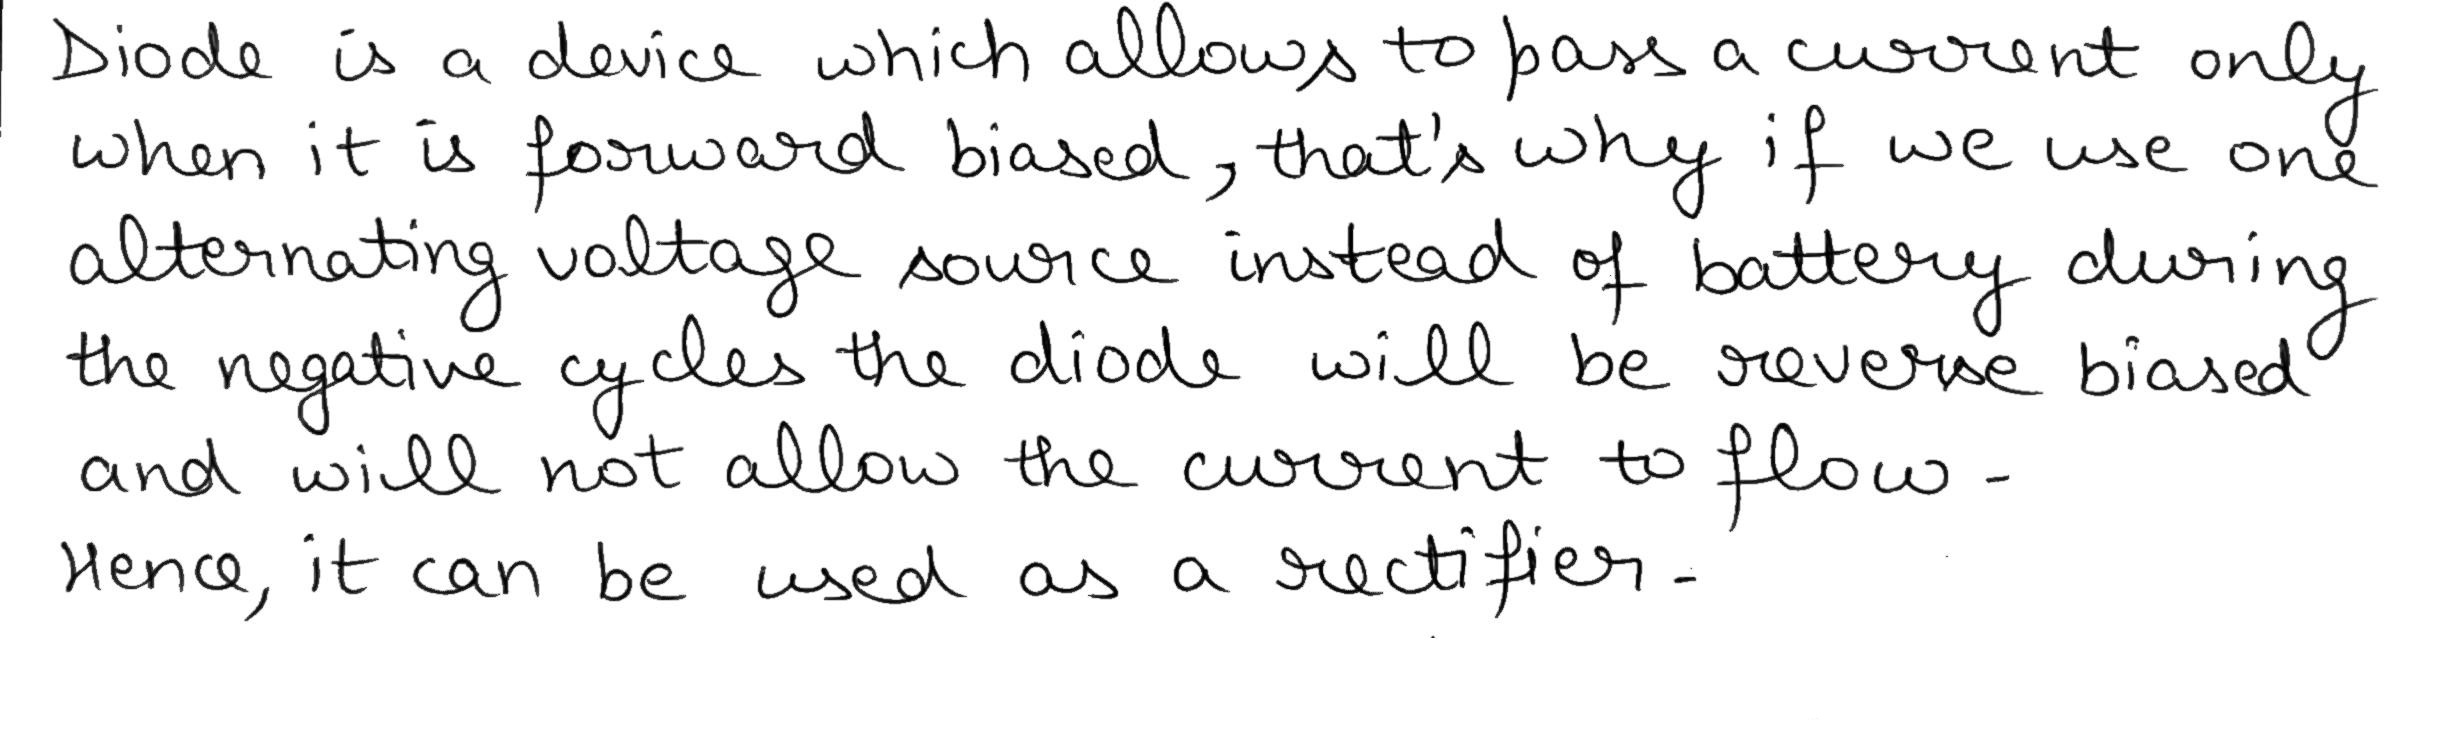 Diode is a device which allows to pass a current only
when it is forward biased, that's why if we use one
alternating voltage source instead of battery during
the negative cycles the diode will be reverse biased
and will not allow the current to flow.
Hence, it can be used as a rectifier.